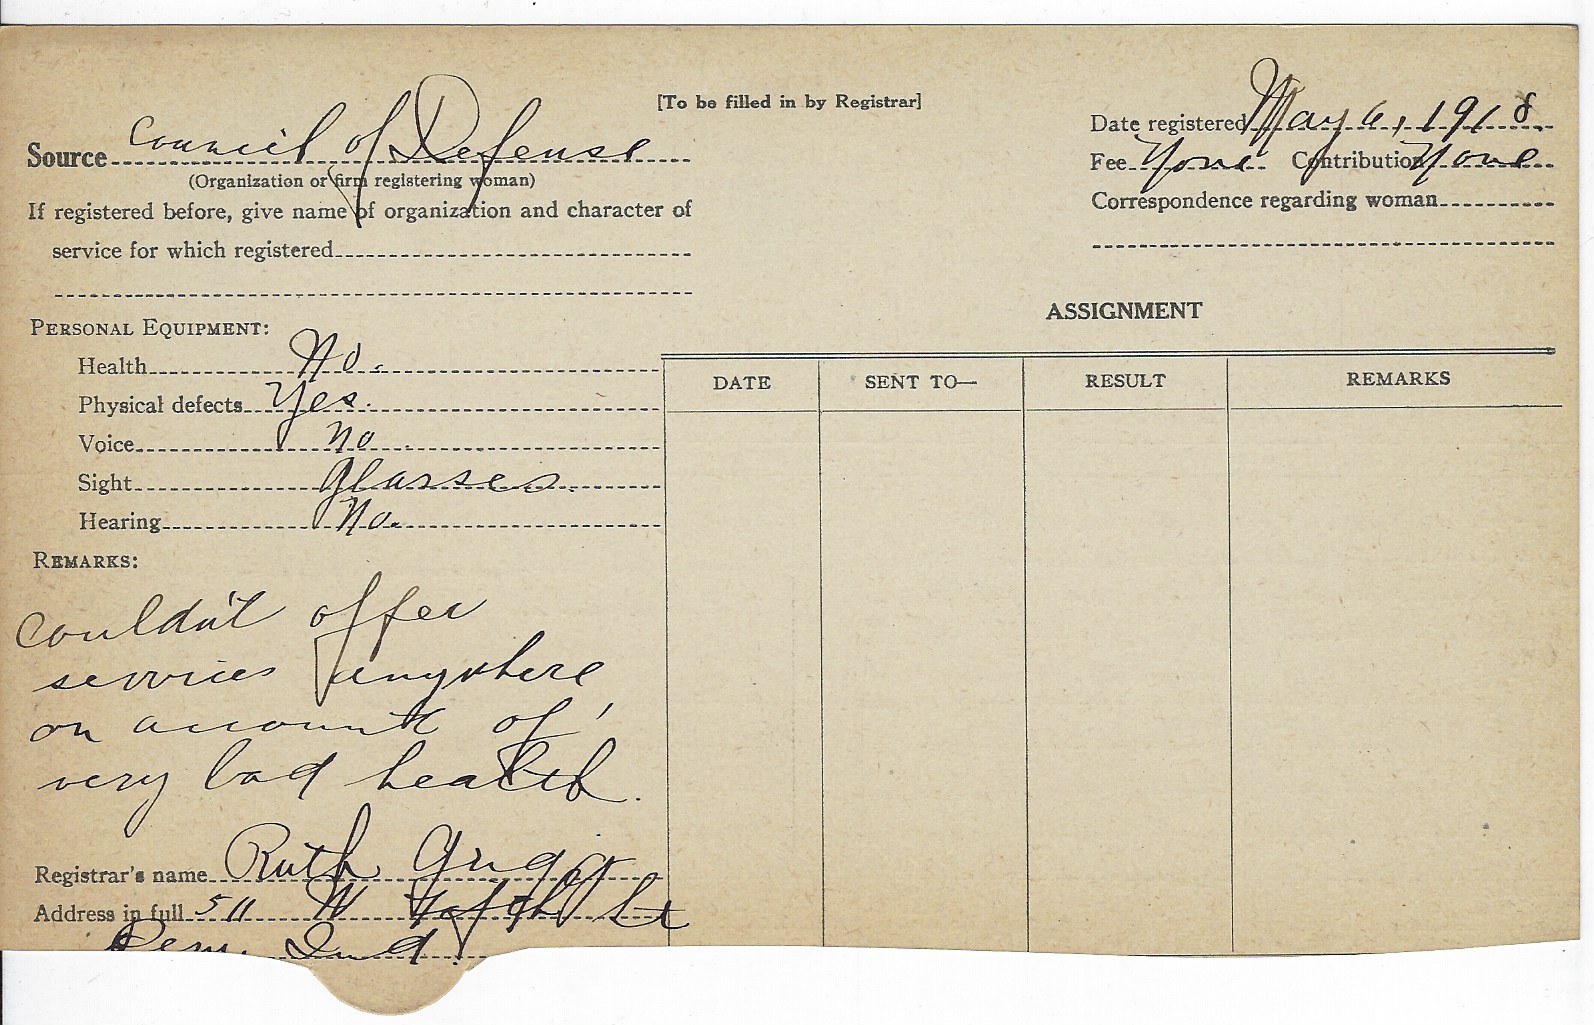 [To be filled in by Registrar]
Source Council of Defense
(Organization or firm registering woman)
If registered before, give name of organization and character of
service for which registered
Date registered May 6, 1918.
Fee None Contribution None
Correspondence regarding woman
PERSONAL EQUIPMENT:
Health No.
Physical defects Yes.
Voice no.
Sight glasses.
Hearing No.
REMARKS:
Couldn't offer
services anywhere
on account of
very bad health.
Registrar's name Ruth Grigg
Address in full 511 W St
Peru, Ind.
ASSIGNMENT
DATE SENT TO— RESULT REMARKS